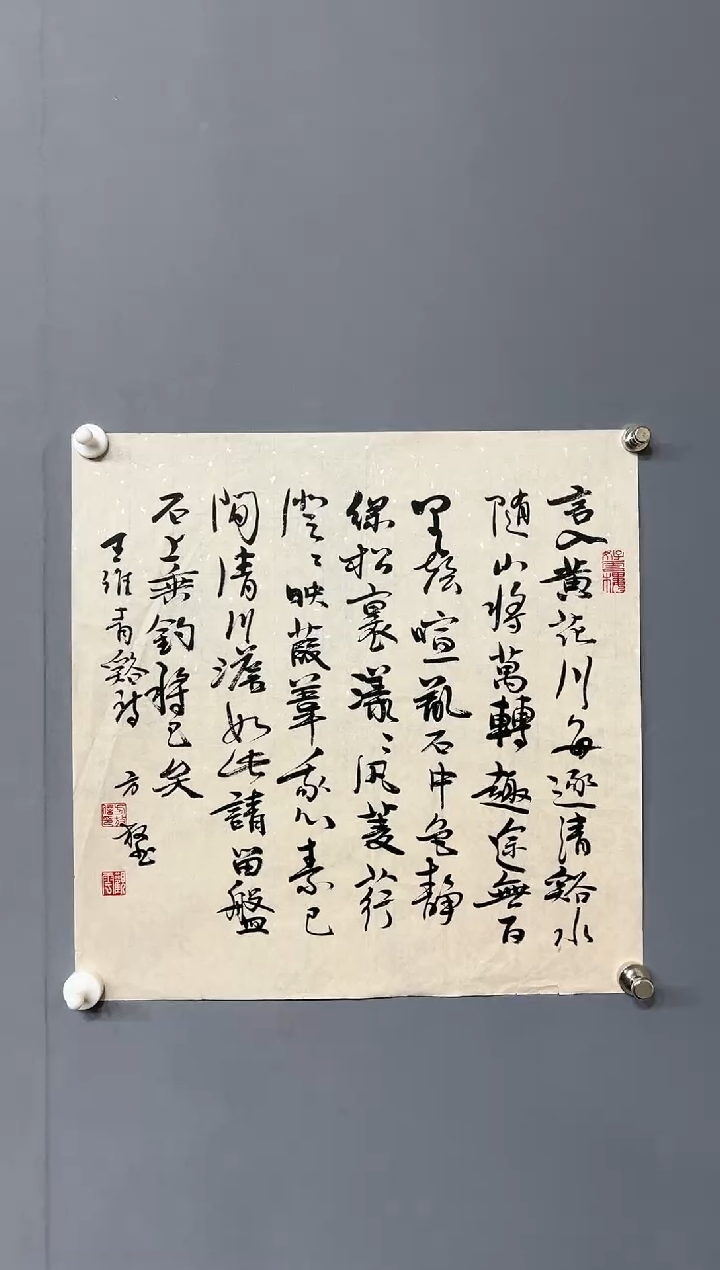 言入黄花川每逐清谿水
隨山將萬轉趣途無百
里聲喧亂石中色靜
松裏漾〻汎菱荇
澄〻映葭葦我心素已
間清川澹如此請留盤
石上垂釣將已矣
王維青谿詩 方 書